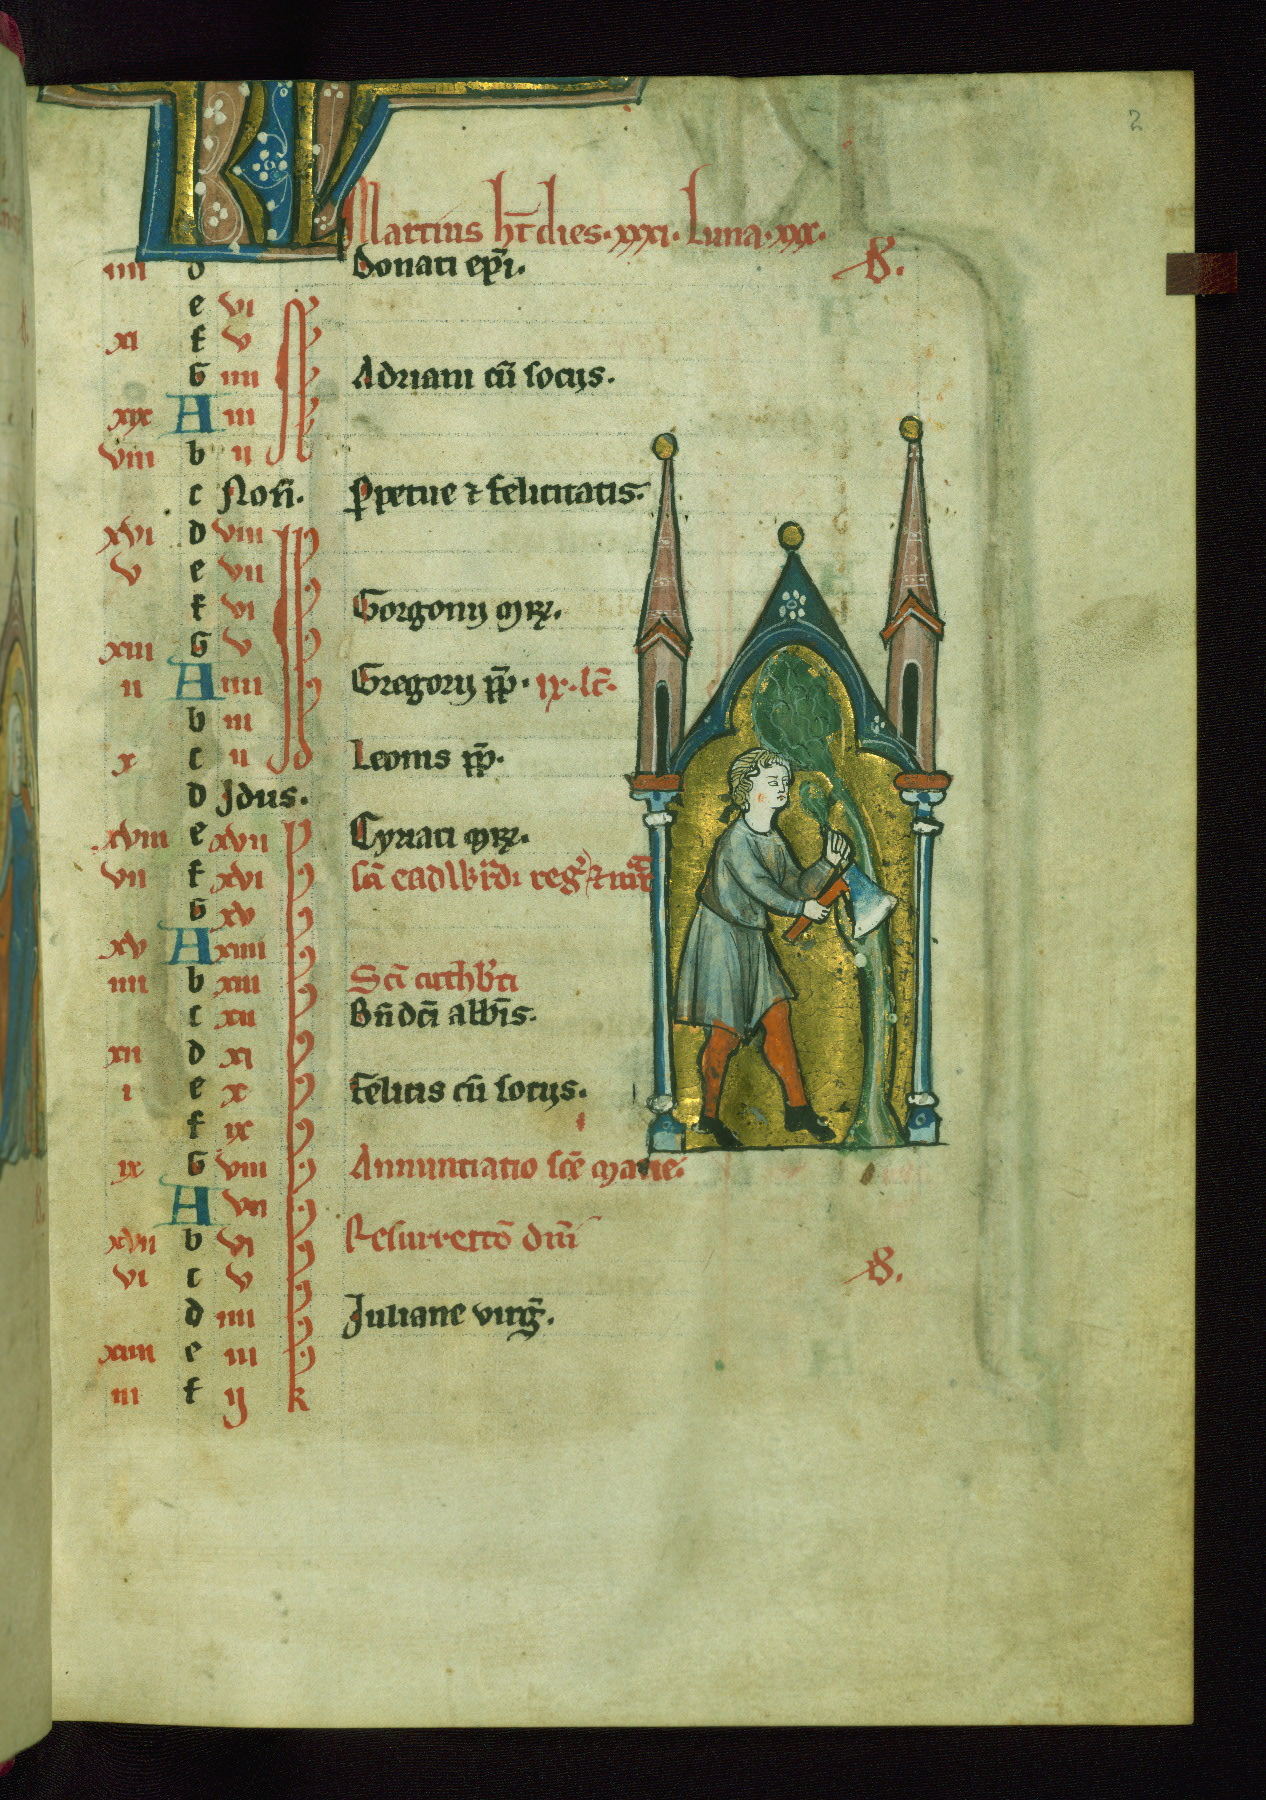 2
KL
Martius ht̄ dies · xxxi · Luna · xxx ·
iiii d Donati ep̄i. S.
e vi
xi f v
G iiii Adriani cū sociis.
xix A iii
viii b ii
c Non̄. Ꝑpetue ⁊ felicitatis.
xvi d viii
v e vii
f vi Gorgonii mr̄.
xiii G v
ii A iiii Gregorii pp̄ · ix · lc̄ ·
b iii
x c ii Leonis pp̄.
D Idus.
xviii e xvii Cyriaci mr̄.
vii f xvi Sc̄i eadwardi reḡ ⁊ mr̄
G xv
xv A xiiii
iiii b xiii Sc̄i cuthb̄ti
c xii Bn̄dc̄i abb̄is.
xii d xi
i e x Felicis cū sociis.
f ix
ix G viii Annuntiatio sc̄e marie.
A vii
xvii b vi Resurrectō dn̄i
vi c v S.
d iiii Iuliane virḡ.
xiiii e iii
iii f ij k